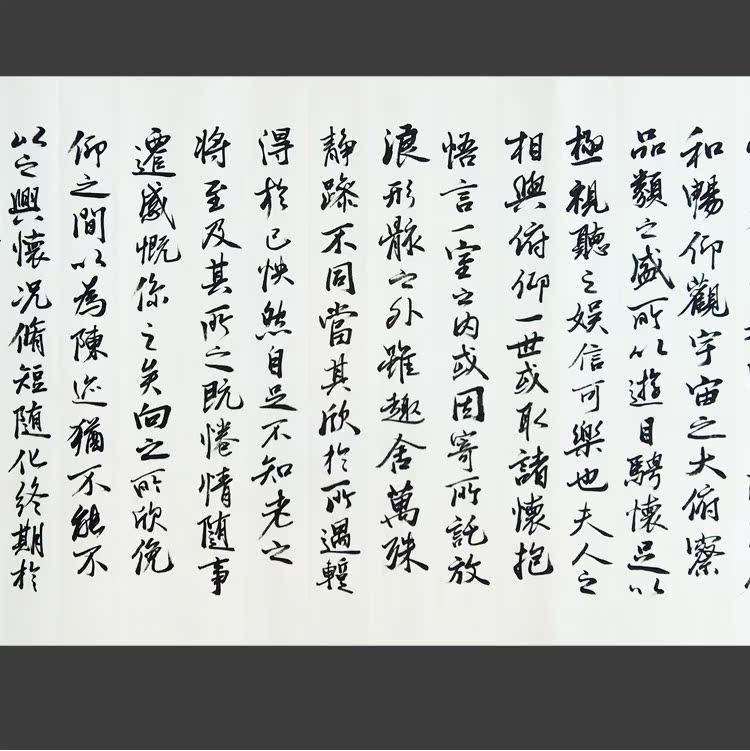 和暢仰觀宇宙之大俯察
品類之盛所以遊目騁懷足以
極視聽之娛信可樂也夫人之
相與俯仰一世或取諸懷抱
悟言一室之內或因寄所託放
浪形骸之外雖趣舍萬殊
靜躁不同當其欣於所遇蹔
得於己怏然自足不知老之
將至及其所之既惓情隨事
遷感慨係之矣向之所欣俛
仰之間以為陳迹猶不能不
以之興懷況脩短隨化終期於